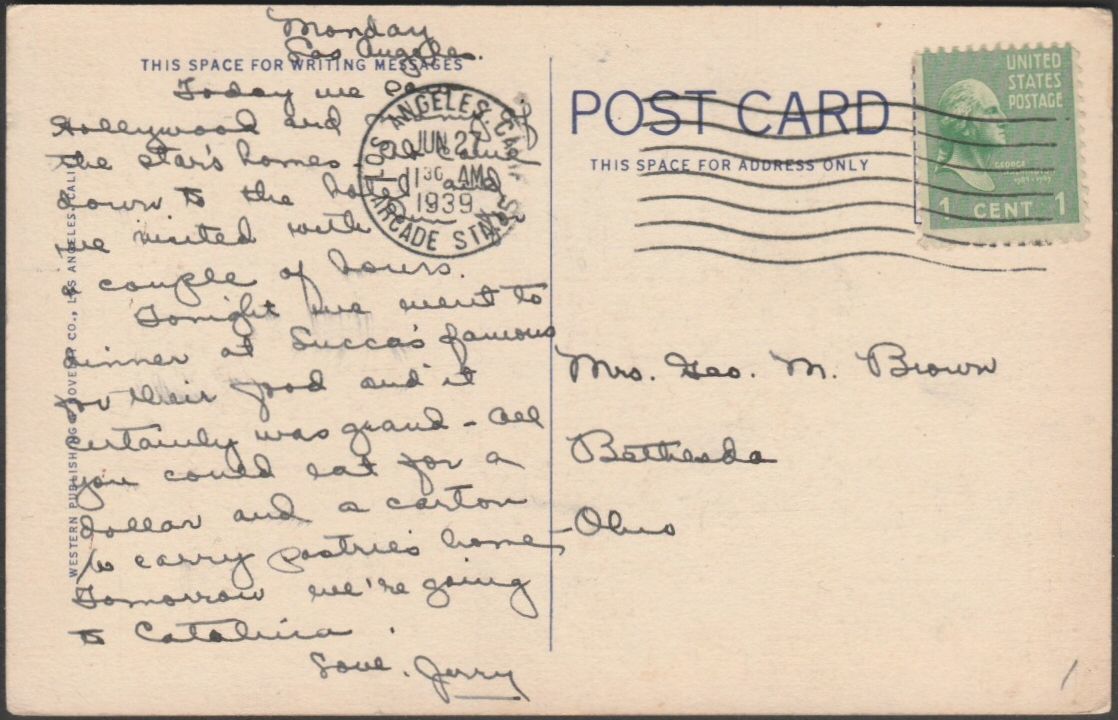 Monday
Los Angeles.
THIS SPACE FOR WRITING MESSAGES
Today we
Hollywood and of
the star's homes.
down to the hotel and
we visited with
a couple of hours.
Tonight we went to
dinner at Succa's famous
for their food and it
certainly was grand - all
you could eat for a
dollar and a carton
to carry pastries home
Tomorrow we're going
to Catalina.
Love, Jerry
WESTERN PUBLISHING & NOVELTY CO., LOS ANGELES, CALIF.
LOS ANGELES, CALIF.
JUN 27
11 30 AM
1939
ARCADE STA.
POST CARD
THIS SPACE FOR ADDRESS ONLY
UNITED
STATES
POSTAGE
GEORGE
WASHINGTON
1789-1797
1 CENT 1
Mrs. Geo. M. Brown
Bethesda
Ohio
1